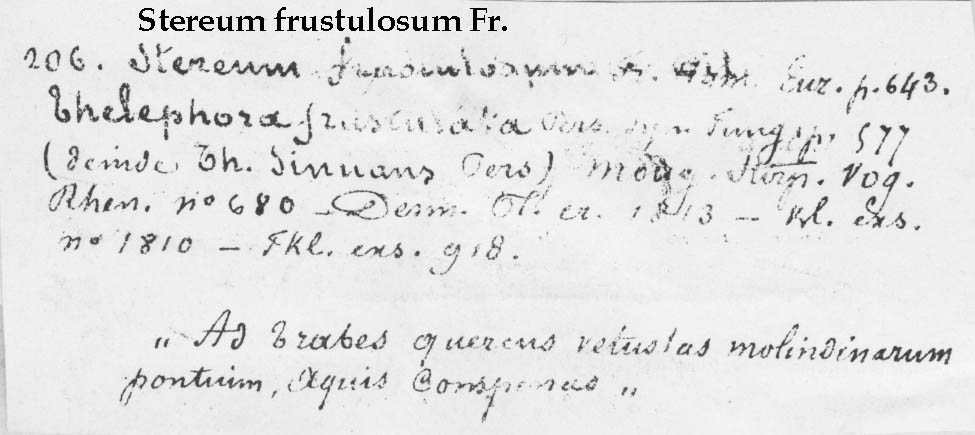 Stereum frustulosum Fr.
206. Stereum frustulosum Fr. Hym. Eur. p. 643.
Thelephora frustulata Pers. syn. Fung. p. 577
(deinde Th. sinuans Pers) Moug. Stirp. Vog.
Rhen. nº 680 – Desm. Pl. cr. 1813 – Kl. exs.
nº 1810 – Fkl. exs. 918.
„ Ad trabes quercus vetustas molindinarum
pontium, aquis conspersas „